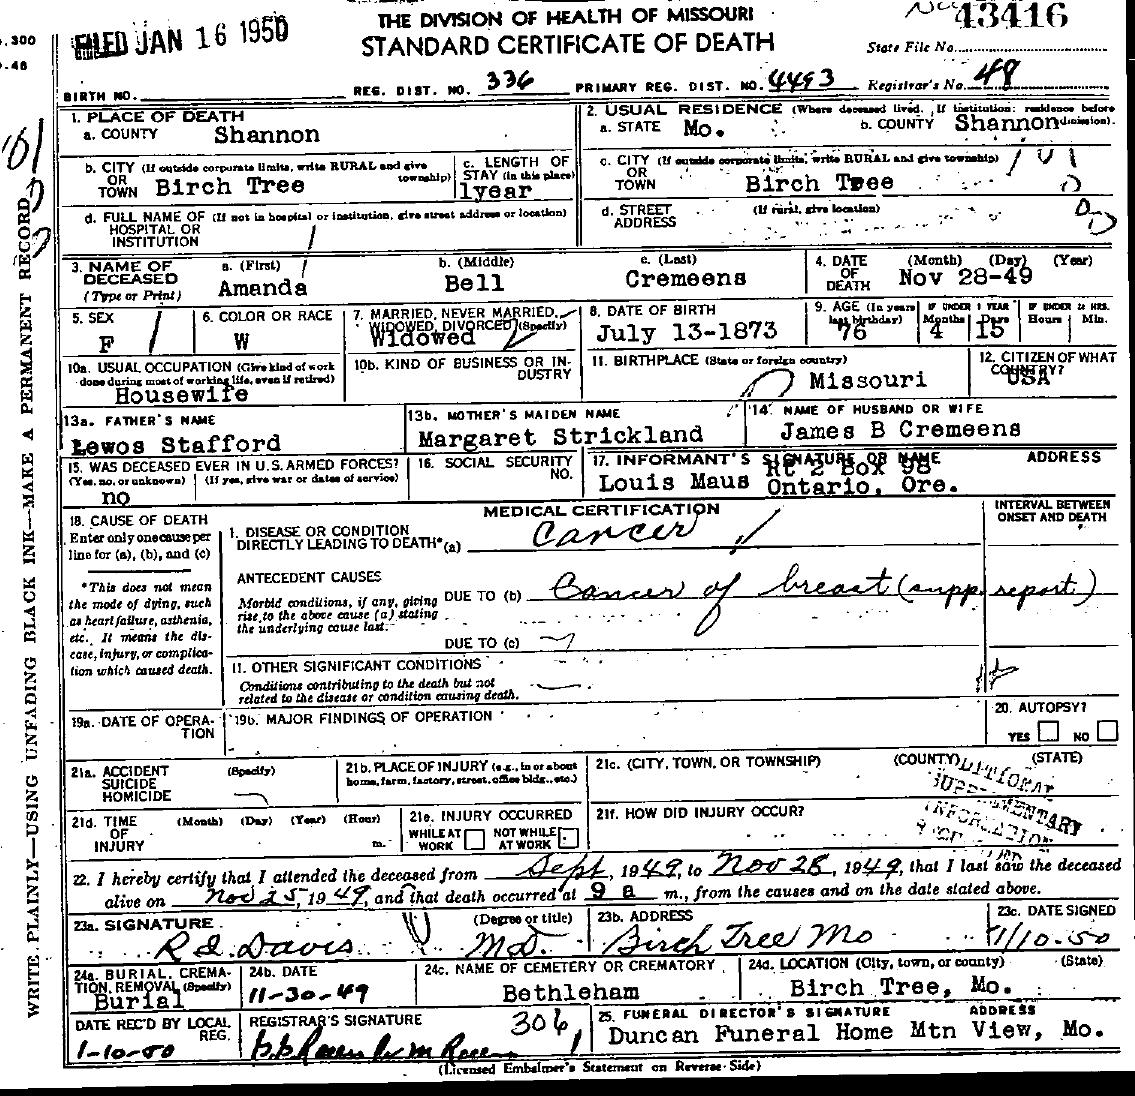 FILED JAN 16 1950
THE DIVISION OF HEALTH OF MISSOURI
STANDARD CERTIFICATE OF DEATH
43416
State File No.
.300
.48
BIRTH NO.
REG. DIST. NO. 336
PRIMARY REG. DIST. NO. 4493
Registrar's No. 48
WRITE PLAINLY—USING UNFADING BLACK INK—MAKE A PERMANENT RECORD
1. PLACE OF DEATH
a. COUNTY Shannon
2. USUAL RESIDENCE (Where deceased lived. If institution: residence before admission).
a. STATE Mo. b. COUNTY Shannon
b. CITY (If outside corporate limits, write RURAL and give township)
OR
TOWN Birch Tree
c. LENGTH OF
STAY (in this place)
1year
c. CITY (If outside corporate limits, write RURAL and give township)
OR
TOWN Birch Tree
d. FULL NAME OF (If not in hospital or institution, give street address or location)
HOSPITAL OR
INSTITUTION
d. STREET (If rural, give location)
ADDRESS
3. NAME OF
DECEASED
(Type or Print)
a. (First) Amanda
b. (Middle) Bell
c. (Last) Cremeens
4. DATE (Month) (Day) (Year)
OF
DEATH Nov 28-49
5. SEX
F
6. COLOR OR RACE
W
7. MARRIED, NEVER MARRIED,
WIDOWED, DIVORCED (Specify)
Widowed
8. DATE OF BIRTH
July 13-1873
9. AGE (In years last birthday) 76
IF UNDER 1 YEAR
Months Days
4 15
IF UNDER 24 HRS.
Hours Min.
10a. USUAL OCCUPATION (Give kind of work
done during most of working life, even if retired)
Housewife
10b. KIND OF BUSINESS OR INDUSTRY
11. BIRTHPLACE (State or foreign country)
Missouri
12. CITIZEN OF WHAT
COUNTRY?
USA
13a. FATHER'S NAME
Lewos Stafford
13b. MOTHER'S MAIDEN NAME
Margaret Strickland
14. NAME OF HUSBAND OR WIFE
James B Cremeens
15. WAS DECEASED EVER IN U.S. ARMED FORCES?
(Yes, no, or unknown) (If yes, give war or dates of service)
no
16. SOCIAL SECURITY
NO.
17. INFORMANT'S SIGNATURE OR NAME ADDRESS
Rt 2 Box 98
Louis Maus Ontario, Ore.
MEDICAL CERTIFICATION
INTERVAL BETWEEN
ONSET AND DEATH
18. CAUSE OF DEATH
Enter only one cause per
line for (a), (b), and (c)
I. DISEASE OR CONDITION
DIRECTLY LEADING TO DEATH*(a) Cancer
*This does not mean
the mode of dying, such
as heart failure, asthenia,
etc. It means the disease, injury, or complication which caused death.
ANTECEDENT CAUSES
Morbid conditions, if any, giving
rise to the above cause (a) stating
the underlying cause last.
DUE TO (b) Cancer of breast (supp. report)
DUE TO (c)
II. OTHER SIGNIFICANT CONDITIONS
Conditions contributing to the death but not
related to the disease or condition causing death.
19a. DATE OF OPERATION
19b. MAJOR FINDINGS OF OPERATION
20. AUTOPSY?
YES NO
21a. ACCIDENT (Specify)
SUICIDE
HOMICIDE
21b. PLACE OF INJURY (e.g., in or about
home, farm, factory, street, office bldg., etc.)
21c. (CITY, TOWN, OR TOWNSHIP) (COUNTY) (STATE)
21d. TIME (Month) (Day) (Year) (Hour)
OF
INJURY m.
21e. INJURY OCCURRED
WHILE AT WORK NOT WHILE AT WORK
21f. HOW DID INJURY OCCUR?
22. I hereby certify that I attended the deceased from Sept, 1949, to Nov 28, 1949, that I last saw the deceased
alive on Nov 25, 1949, and that death occurred at 9 a m., from the causes and on the date stated above.
23a. SIGNATURE (Degree or title)
R I. Davis MD.
23b. ADDRESS
Birch Tree Mo
23c. DATE SIGNED
1/10-50
24a. BURIAL, CREMATION, REMOVAL (Specify)
Burial
24b. DATE
11-30-49
24c. NAME OF CEMETERY OR CREMATORY
Bethleham
24d. LOCATION (City, town, or county) (State)
Birch Tree, Mo.
DATE REC'D BY LOCAL
REG.
1-10-50
REGISTRAR'S SIGNATURE
306
25. FUNERAL DIRECTOR'S SIGNATURE ADDRESS
Duncan Funeral Home Mtn View, Mo.
(Licensed Embalmer's Statement on Reverse Side)